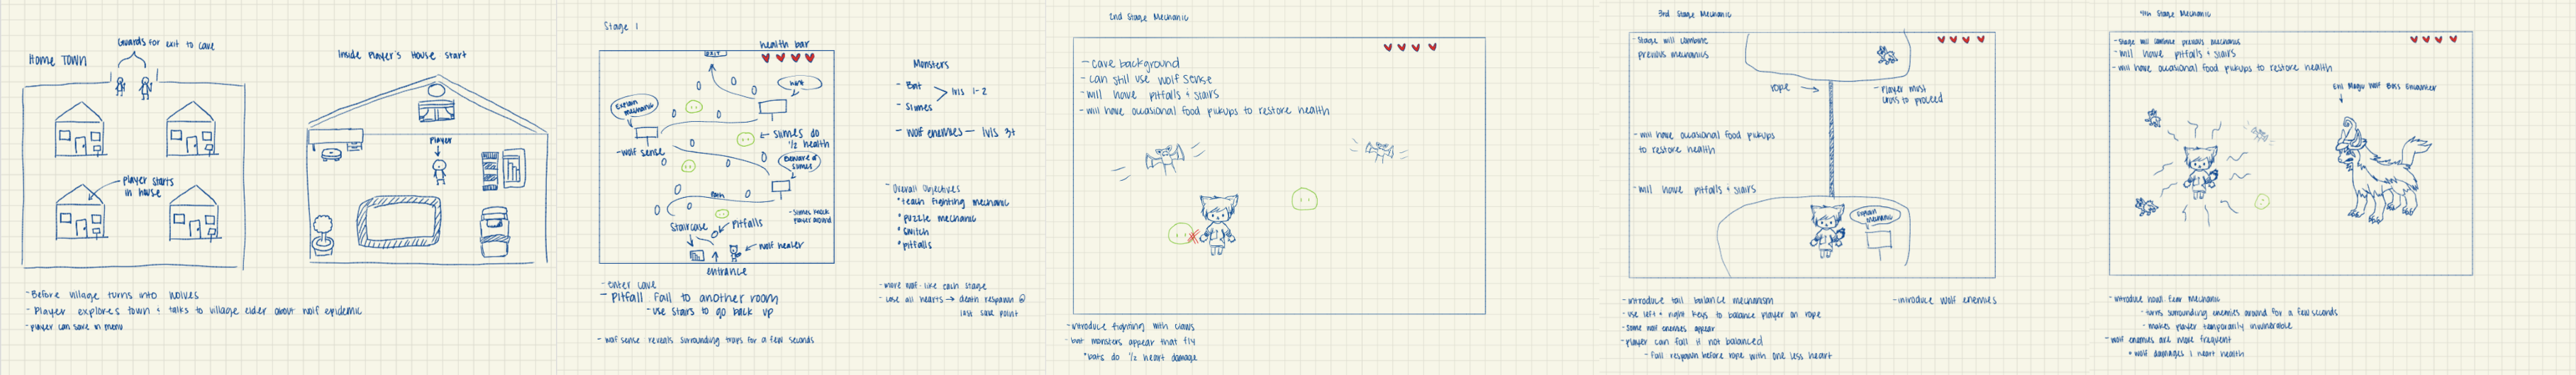 Home TOWN
Guards for exit to cave
player starts
in house
- Before village turns into wolves
- Player explores town + talks to village elder about wolf epidemic
- player can save in menu
Inside Player's House start
Player
Stage 1
health bar
EXIT
hint
Explain
mechanic
- wolf sense
slimes do
1/2 health
Beware of
slimes
path
- slimes knock
player around
Staircase
Pitfalls
wolf healer
entrance
- enter cave
- Pitfall fall to another room
- use stairs to go back up
- wolf sense reveals surrounding traps for a few seconds
Monsters
- Bat
- Slimes
lvls 1-2
- wolf enemies - lvls 3+
- Overall Objectives
* teach fighting mechanic
* puzzle mechanic
* switch
* pitfalls
- more wolf-like each stage
- lose all hearts → death respawn @
last save point
2nd Stage Mechanic
- cave background
- can still use wolf sense
- will have pitfalls + stairs
- will have occasional food pickups to restore health
- introduce fighting with claws
- bat monsters appear that fly
* bats do 1/2 heart damage
3rd Stage Mechanic
- Stage will combine
previous mechanics
rope
- Player must
cross to proceed
- will have occasional food pickups
to restore health
- will have pitfalls + stairs
Explain
mechanic
- introduce tail balance mechanism
- use left + right keys to balance player on rope
- some wolf enemies appear
- player can fall if not balanced
- fall respawn before rope with one less heart
- introduce wolf enemies
4th Stage Mechanic
- Stage will combine previous mechanics
- will have pitfalls + stairs
- will have occasional food pickups to restore health
Evil Mage Wolf Boss Encounter
- introduce howl fear mechanic
- turns surrounding enemies around for a few seconds
- makes player temporarily invulnerable
- wolf enemies are more frequent
* wolf damages 1 heart health